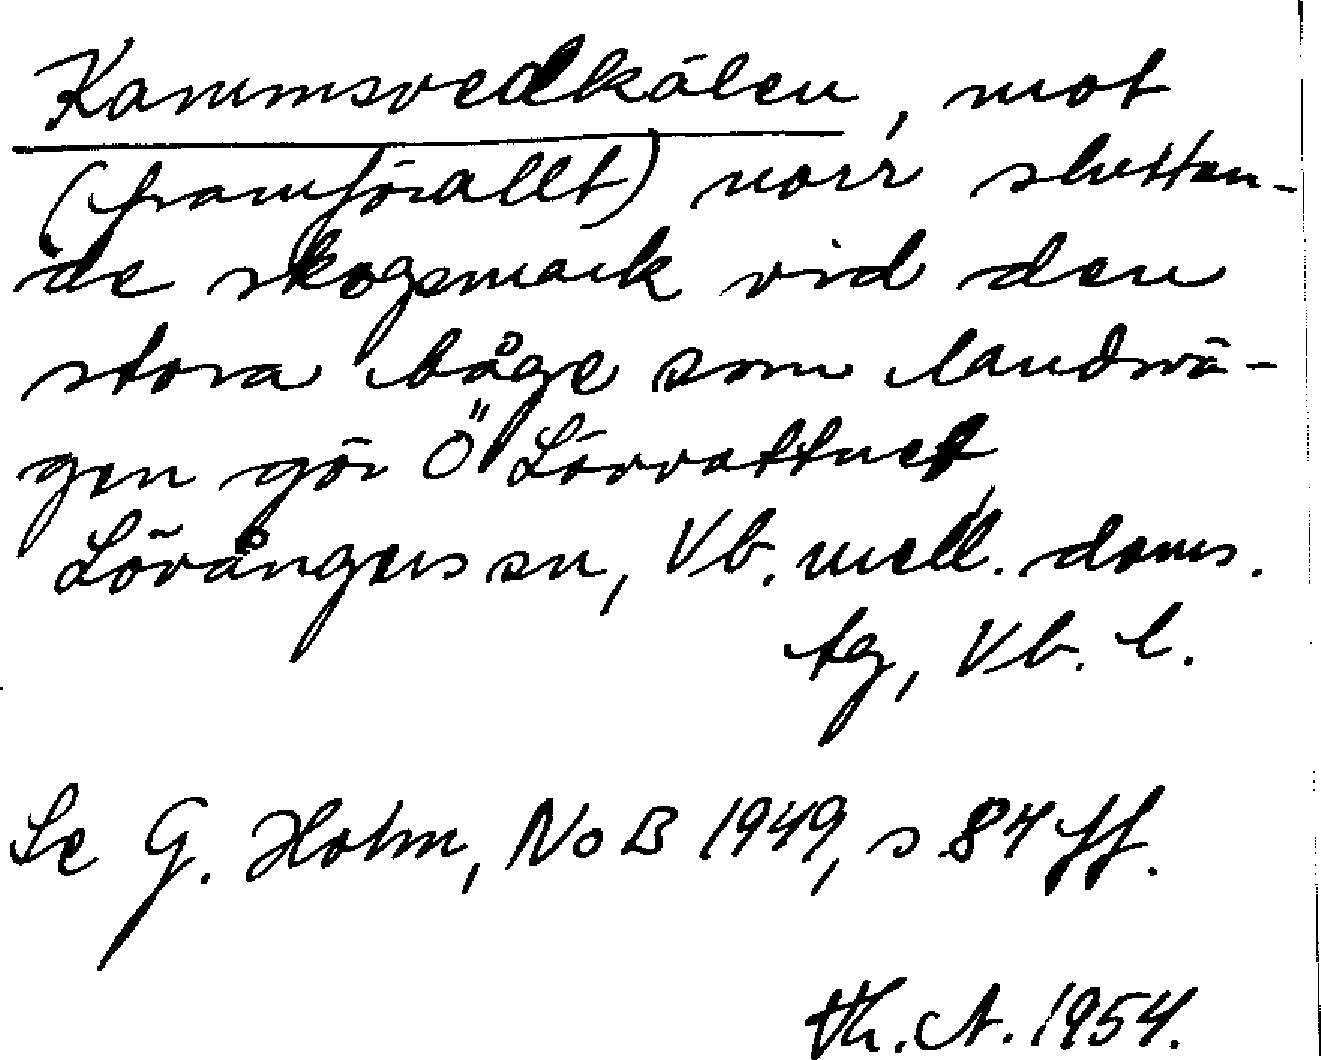 Kammsvedkålen, mot
(framförallt) norr sluttan-
de skogsmark vid den
stora båge som landsvä-
gen gör Ö Lövvattnet,
Lövångers sn, Vb. mell. doms.
tg, Vb. l.
Se G. Holm, NoB 1949, s 84 ff.
Th. A. 1954.